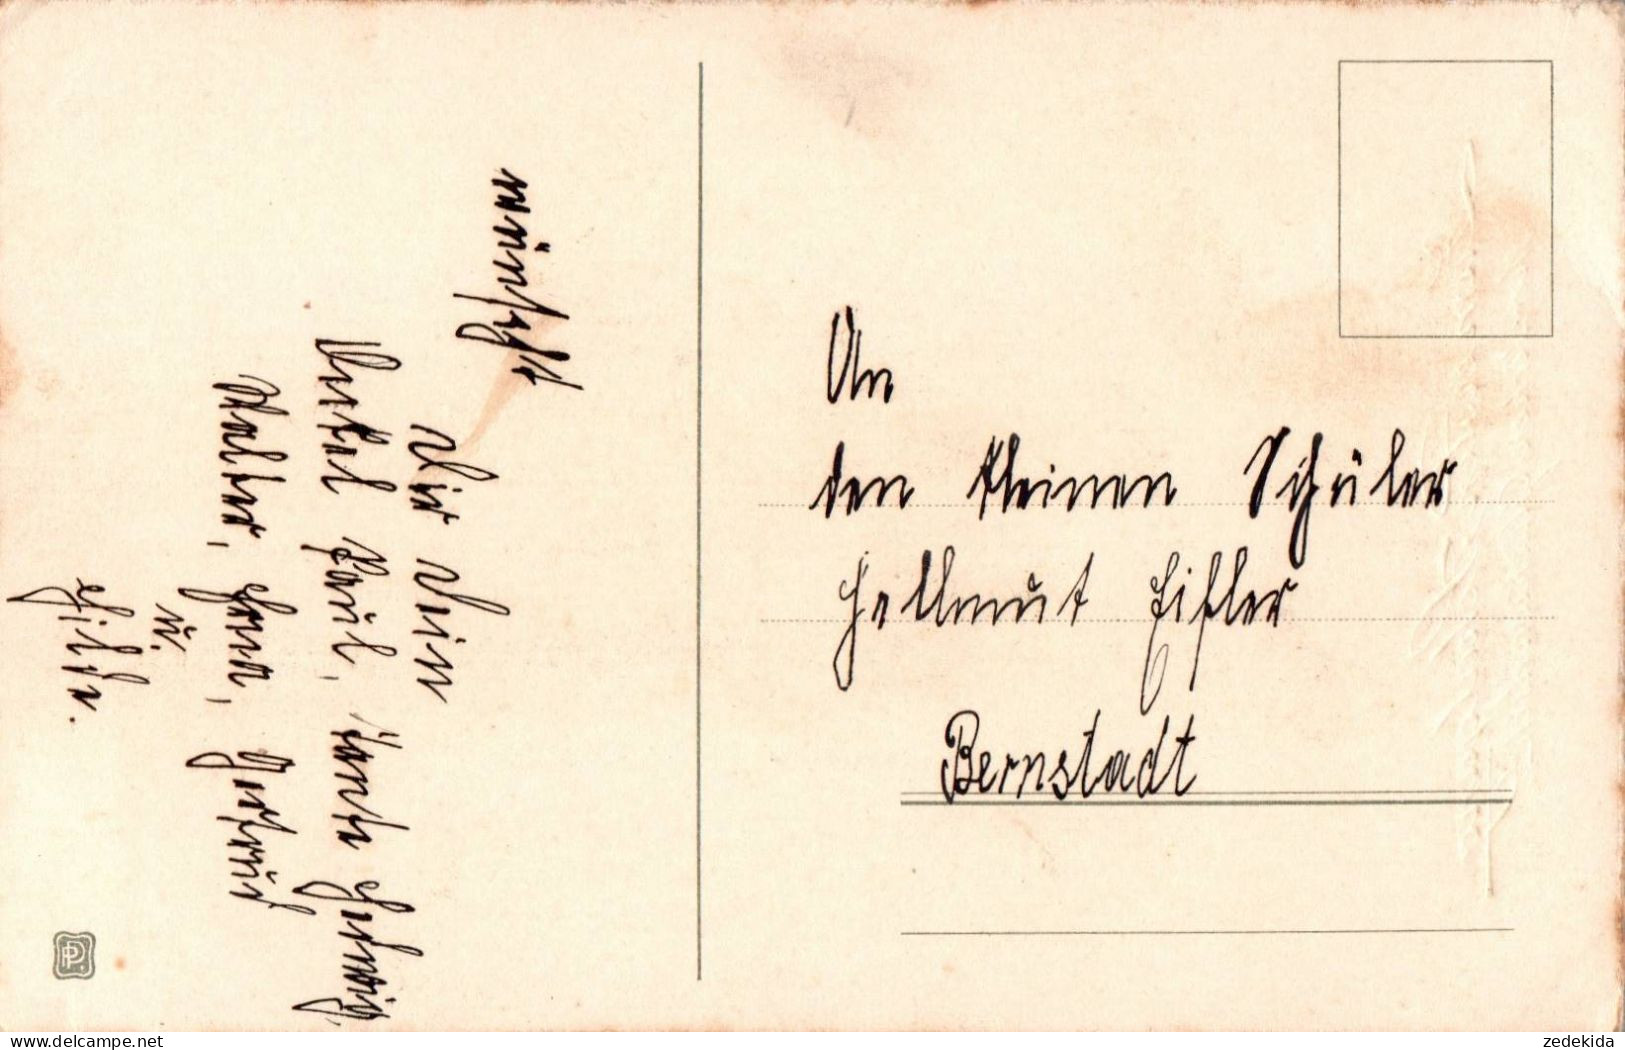 wünscht
Dir Dein
Onkel Paul, Tante Hedwig,
Walter, Hera, Gertrud
u.
Hilde.
An
den kleinen Schüler
Hellmut Eifler
Bernstadt
PP.
zedekida